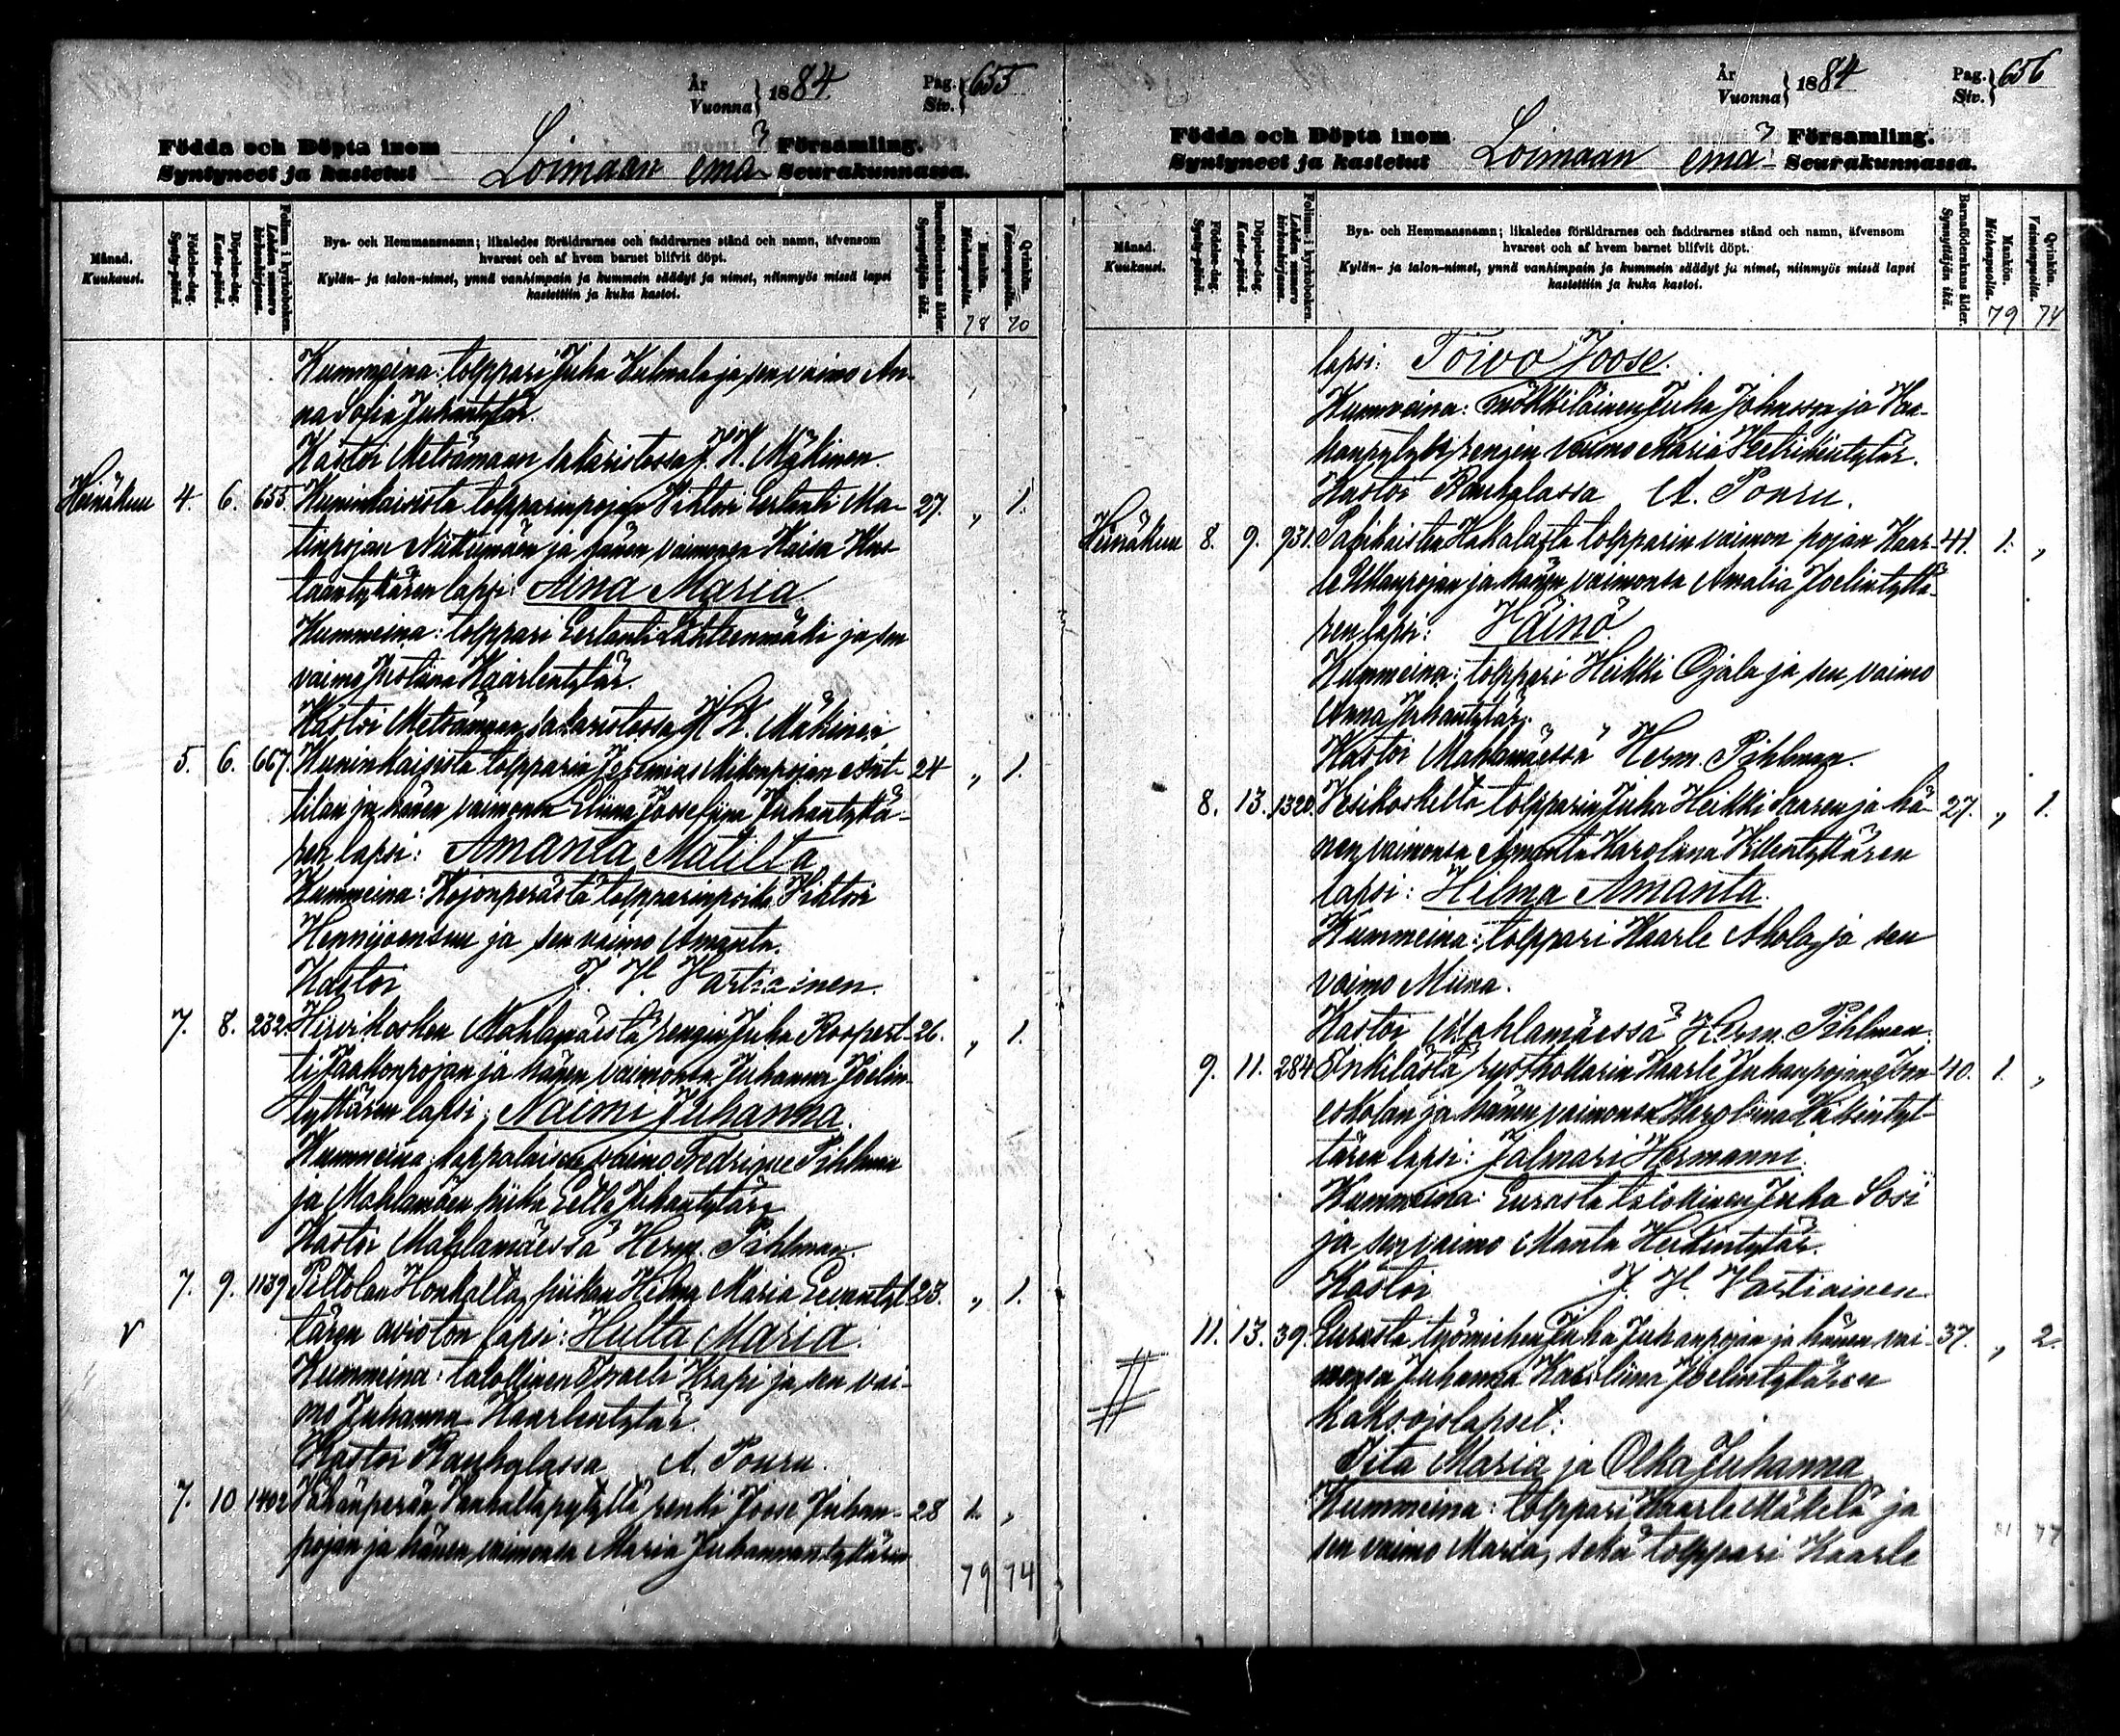 År
Vuonna } 1884 Pag. Siv. { 655
Födda och Döpta inom Församling.
Syntyneet ja kastetut Loimaan emä- Seurakunnassa.
Månad. Kuukausi.
Födelse-dag. Synty-päivä.
Döpelse-dag. Kaste-päivä.
Folium i kyrkoboken. Lehden numero kirkonkirjassa.
Bya- och Hemmansnamn; likaledes föräldrarnes och faddrarnes stånd och namn, äfvensom
hvarest och af hvem barnet blifvit döpt.
Kylän- ja talon-nimet, ynnä vanhimpain ja kummein säädyt ja nimet, niinmyös missä lapsi
kastettiin ja kuka kastoi.
Barnaföderskans ålder. Synnyttäjän ikä.
Mankön. Miehenpuolia. 78
Qvinkön. Vaimonpuolia. 70
Kummeina: tolppari Juha Kulmala ja sen vaimo An-
na Sofia Juhantytär.
Kastoi Metsämaan sakaristossa J. K. Mäkinen.
Heinäkuu 4. 6. 655. Kuninkaisista tolpparinpojan Viktori Eerlanti Ma- 27. „ 1.
tinpojan Niitunmäen ja hänen vaimonsa Kaisa Kus-
taantyttären lapsi: Aina Maria
Kummeina: tolppari Eerlanti Lähteenmäki ja sen
vaimo Justiina Kaarlentytär.
Kastoi Metsämaan sakaristossa J. K. Mäkinen
5. 6. 667. Kuninkaisista tolpparin Jeremias Mikonpojan Ant- 24 „ 1.
tilan ja hänen vaimonsa Eliina Joosefiina Juhantyttä-
ren lapsi: Amanta Matilta
Kummeina: Kojonperästä tolpparinpoika Viktori
Hennijoensuu ja sen vaimo Amanta.
Kastoi J. H. Vartiainen.
7. 8. 232. Hirvikosken Mahlamäestä rengin Juha Roopert- 26. „ 1.
ti Jaakonpojan ja hänen vaimonsa Juhanna Joelin-
tyttären lapsi: Naimi Juhanna.
Kummeina: kappalaisen vaimo Fredrique Pihlman
ja Mahlamäen piika Eetla Juhantytär
Kastoi Mahlamäessä Herm. Pihlman.
7. 9. 1139 Peltolan Honkalta, piikan Hilma Maria Eevantyt- 23. „ 1.
tären avioton lapsi: Hulta Maria.
Kummeina: talollinen Israeli Krapi ja sen vai-
mo Juhanna Kaarlentytär.
Kastoi Rauhalassa A. Pouru.
7. 10 1402 Vähänperän Vanhaltapytyltä renki Joose Juhan- 28 1. „
pojan ja hänen vaimonsa Maria Juhannantyttären
79 74
År
Vuonna } 1884 Pag. Siv. } 656
Födda och Döpta inom Församling.
Syntyneet ja kastetut Loimaan emä- Seurakunnassa.
Månad. Kuukausi.
Födelse-dag. Synty-päivä.
Döpelse-dag. Kaste-päivä.
Folium i kyrkoboken. Lehden numero kirkonkirjassa.
Bya- och Hemmansnamn; likaledes föräldrarnes och faddrarnes stånd och namn, äfvensom
hvarest och af hvem barnet blifvit döpt.
Kylän- ja talon-nimet, ynnä vanhimpain ja kummein säädyt ja nimet, niinmyös missä lapsi
kastettiin ja kuka kastoi.
Barnaföderskans ålder. Synnyttäjän ikä.
Mankön. Miehenpuolia. 79
Qvinkön. Vaimonpuolia. 74
lapsi: Toivo Joose.
Kummeina: mökkiläinen Juha Johansson ja Van-
hanpytyn rengin vaimo Maria Heikintytär.
Kastoi Rauhalassa A. Pouru.
Heinäkuu 8. 9. 931. Papikaisten Hakalasta tolpparin vaimon pojan Kaar- 41. 1. „
le Ullanpojan ja hänen vaimonsa Amalia Joelintyttä-
ren lapsi: Väinö.
Kummeina: tolppari Heikki Ojala ja sen vaimo
Anna Juhantytär.
Kastoi Mahlamäessä Herm. Pihlman.
8. 13. 1320. Vesikoskelta tolpparin Juha Heikki Saaren ja hä- 27. „ 1.
nen vaimonsa Amanta Karoliina Villentyttären
lapsi: Hilma Amanta.
Kummeina: tolppari Kaarle Ahola ja sen
vaimo Miina.
Kastoi Mahlamäessä Herm. Pihlman.
9. 11. 284 Inkilästä rysthollarin Kaarle Juhanpojan 40. 1. „
ja hänen vaimonsa Karoliina Heikintyt-
tären lapsi: Jalmari Hermanni.
Kummeina: Eurasta talokinen Juha Sosi
ja sen vaimo Manta Heikintytär.
Kastoi J. H. Vartiainen.
11. 13. 39. Eurasta työmiehen Juha Juhanpojan ja hänen vai- 37. „ 2.
monsa Juhanna Karoliina Joelintyttären
kaksoislapset:
Vita Maria ja Olka Juhanna
Kummeina: tolppari Kaarle Mäkelä ja
sen vaimo Maria, sekä tolppari Kaarle
81 77